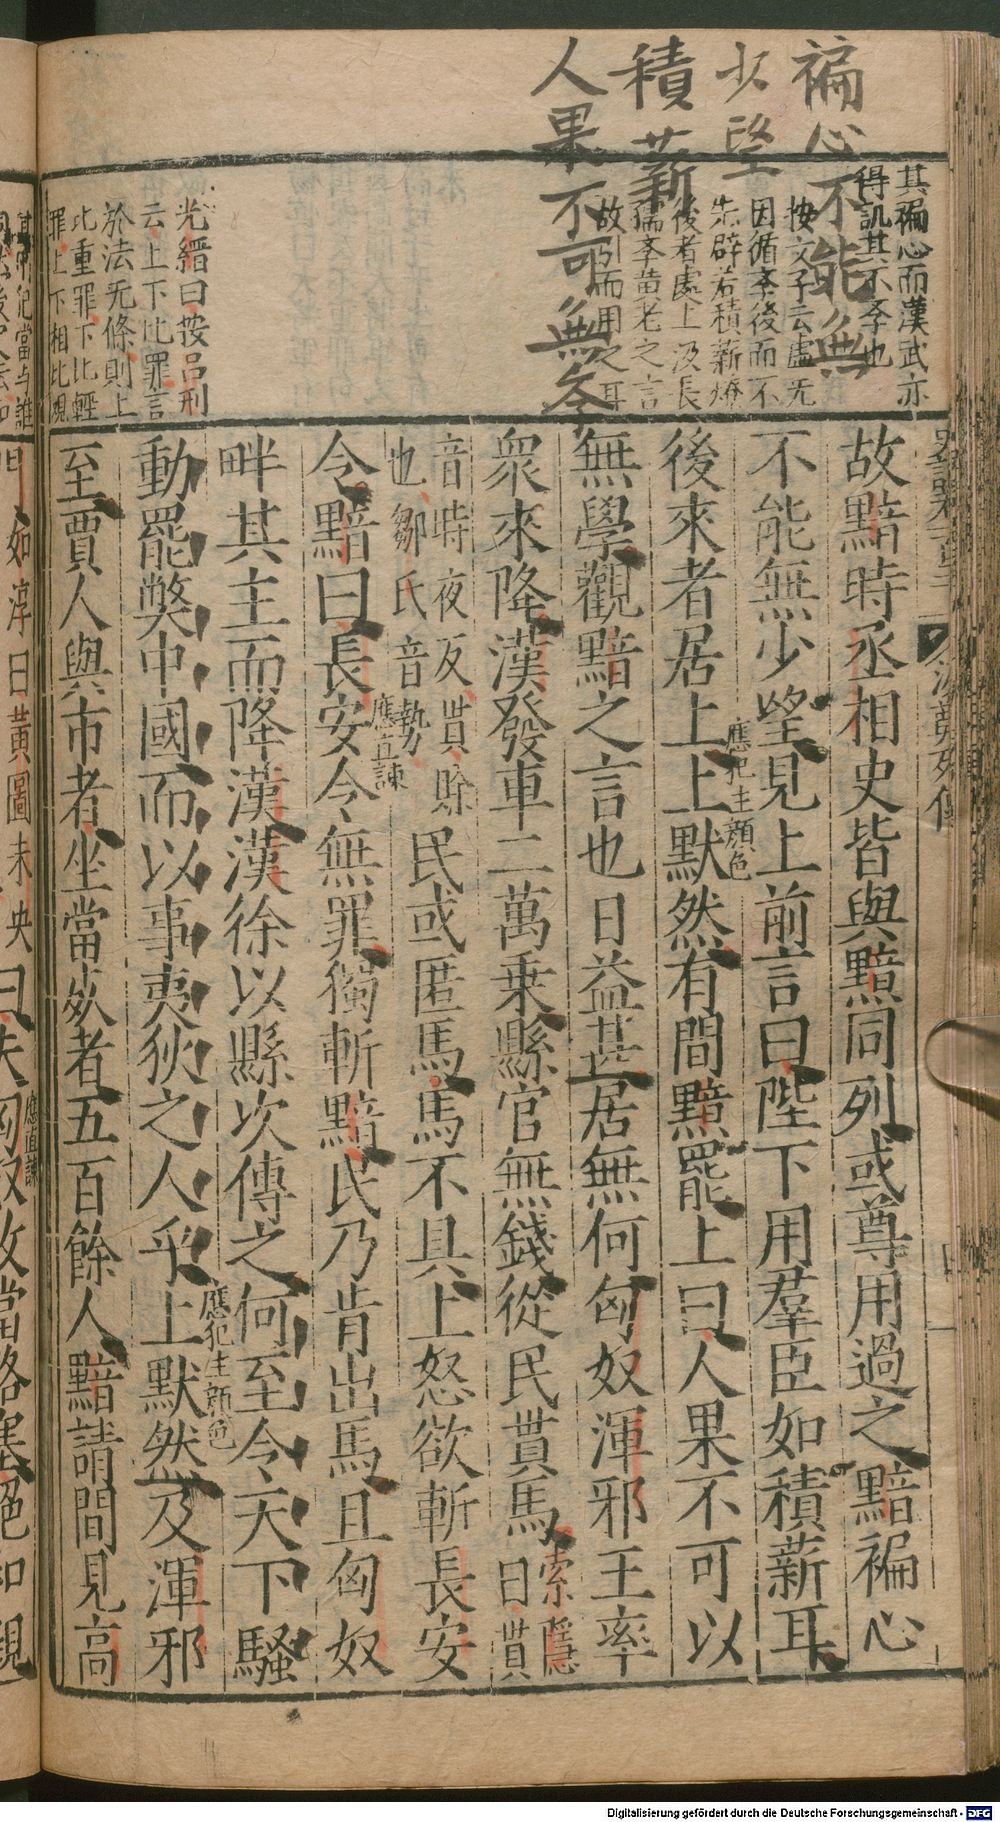 褊心不能無
少望
積薪
人果不可無𠆢
其褊心而漢武亦
得訊其不孝也
按文子云虛无
因循李後而不
先辟若積薪燎
後者處上汲長
孺李黃老之言
故引而用之耳
光縉曰按呂刑
云上下比罪言
於法无條則上
比重罪下比輕
罪上下相比觀
汲鄭列傳
故黯時丞相史皆與黯同列或尊用過之黯褊心
不能無少望見上前言曰陛下用羣臣如積薪耳
應犯主顏色
後來者居上上默然有間黯罷上曰人果不可以
無學觀黯之言也日益甚居無何匈奴渾邪王率
衆來降漢發車二萬乗縣官無錢從民貰馬 索隱曰貰
音時夜反貰賒
也鄒氏音勢
民或匿馬馬不具上怒欲斬長安
應直諫
令黯曰長安令無罪獨斬黯民乃肯出馬且匈奴
畔其主而降漢漢徐以縣次傳之何至令天下騷
應犯主顏色
動罷獘中國而以事夷狄之人乎上默然及渾邪
至賈人與市者坐當㱾者五百餘人黯請間見高
門 如淳曰黃圖未央 曰夫匈奴攻當路塞絕和親
應直諫
Digitalisierung gefördert durch die Deutsche Forschungsgemeinschaft - DFG